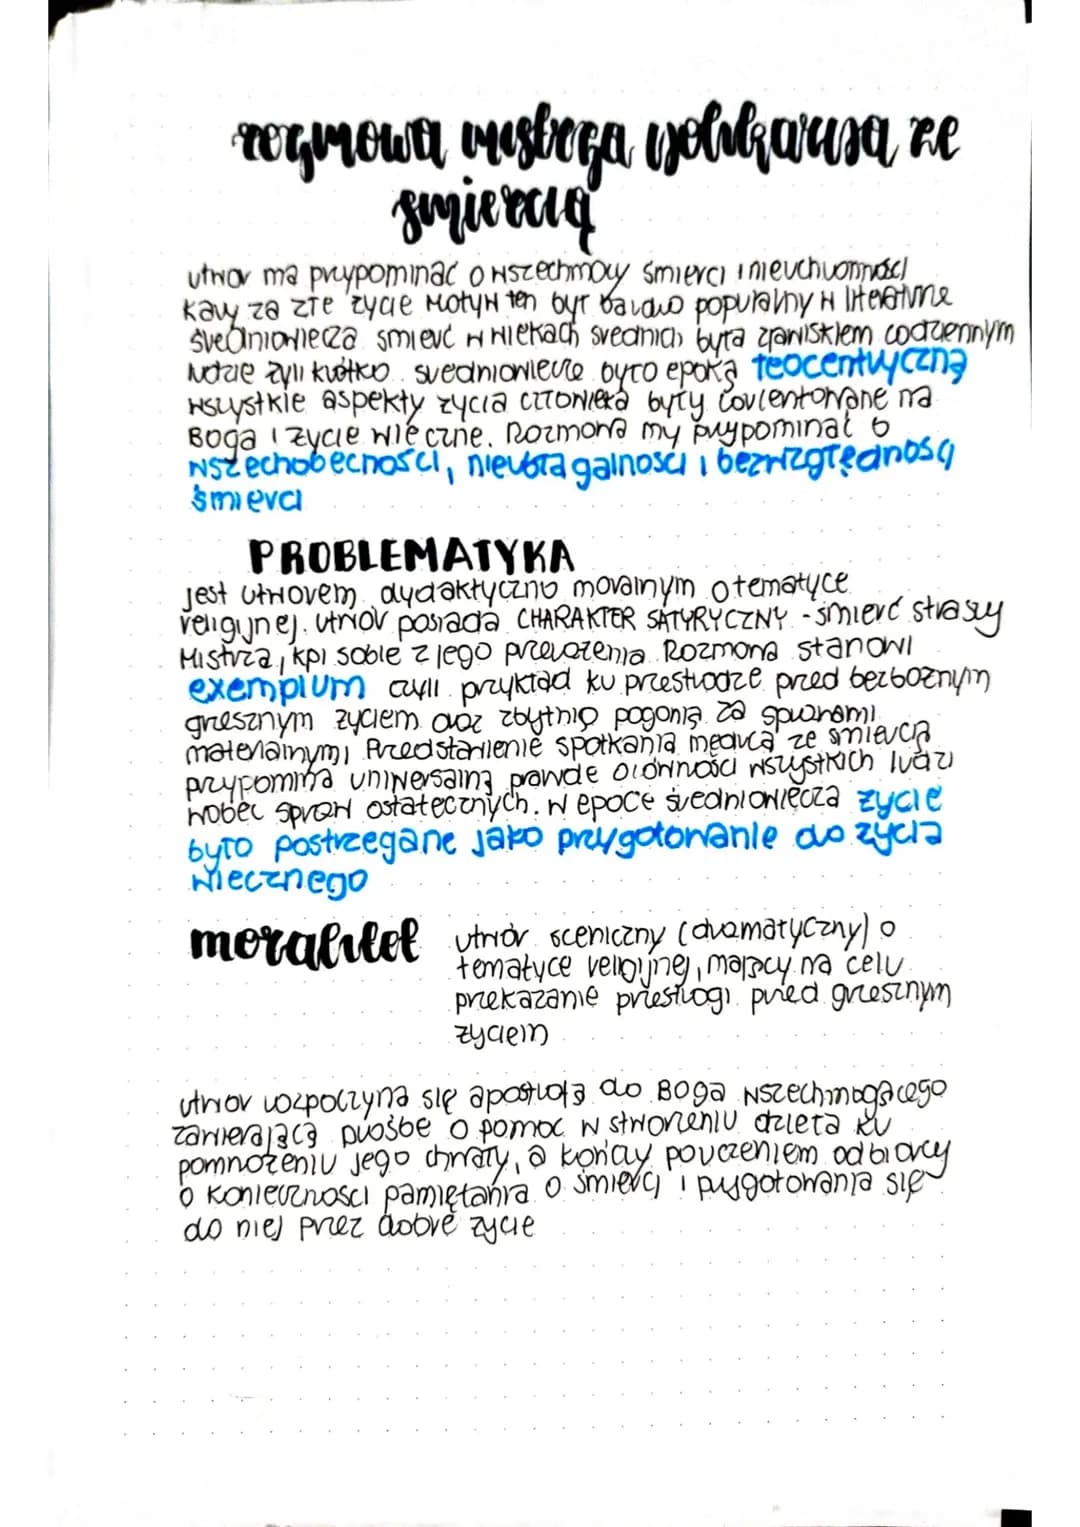 rozmowa mistrza polikarpa ze
śmiercią
utwór ma przypominać o wszechmocy śmierci i nieuchronności
kary za złe życie Motyw ten był bardzo popularny w literaturze
średniowiecza śmierć w wiekach średnich była zjawiskiem codziennym
ludzie żyli krótko. średniowiecze było epoką teocentryczną
wszystkie aspekty życia człowieka były zorientowane na
Boga i życie wieczne. Rozmowa my przypominać o
wszechobecności, nieubłagalności i bezwzględności
śmierci
PROBLEMATYKA
jest utworem dydaktyczno moralnym o tematyce
religijnej. utwór posiada CHARAKTER SATYRYCZNY - śmierć straszy
Mistrza, kpi sobie z jego przerażenia Rozmowa stanowi
exemplum czyli przykład ku przestrodze przed bezbożnym
grzesznym życiem oraz zbytnią pogonią za sprawami
materialnymi Przedstawienie spotkania mędrca ze śmiercią
przypomina uniwersalną prawdę o równości wszystkich ludzi
wobec spraw ostatecznych. w epoce średniowiecza życie
było postrzegane jako przygotowanie do życia
wiecznego
moralitet utwór sceniczny (dramatyczny) o
tematyce religijnej, mający na celu
przekazanie przestrogi przed grzesznym
życiem
utwór rozpoczyna się apostrofą do Boga wszechmogącego
zawierającą prośbę o pomoc w stworzeniu dzieła ku
pomnożeniu jego chwały, a kończy pouczeniem odbiorcy
o konieczności pamiętania o śmierci i przygotowania się
do niej przez dobre życie